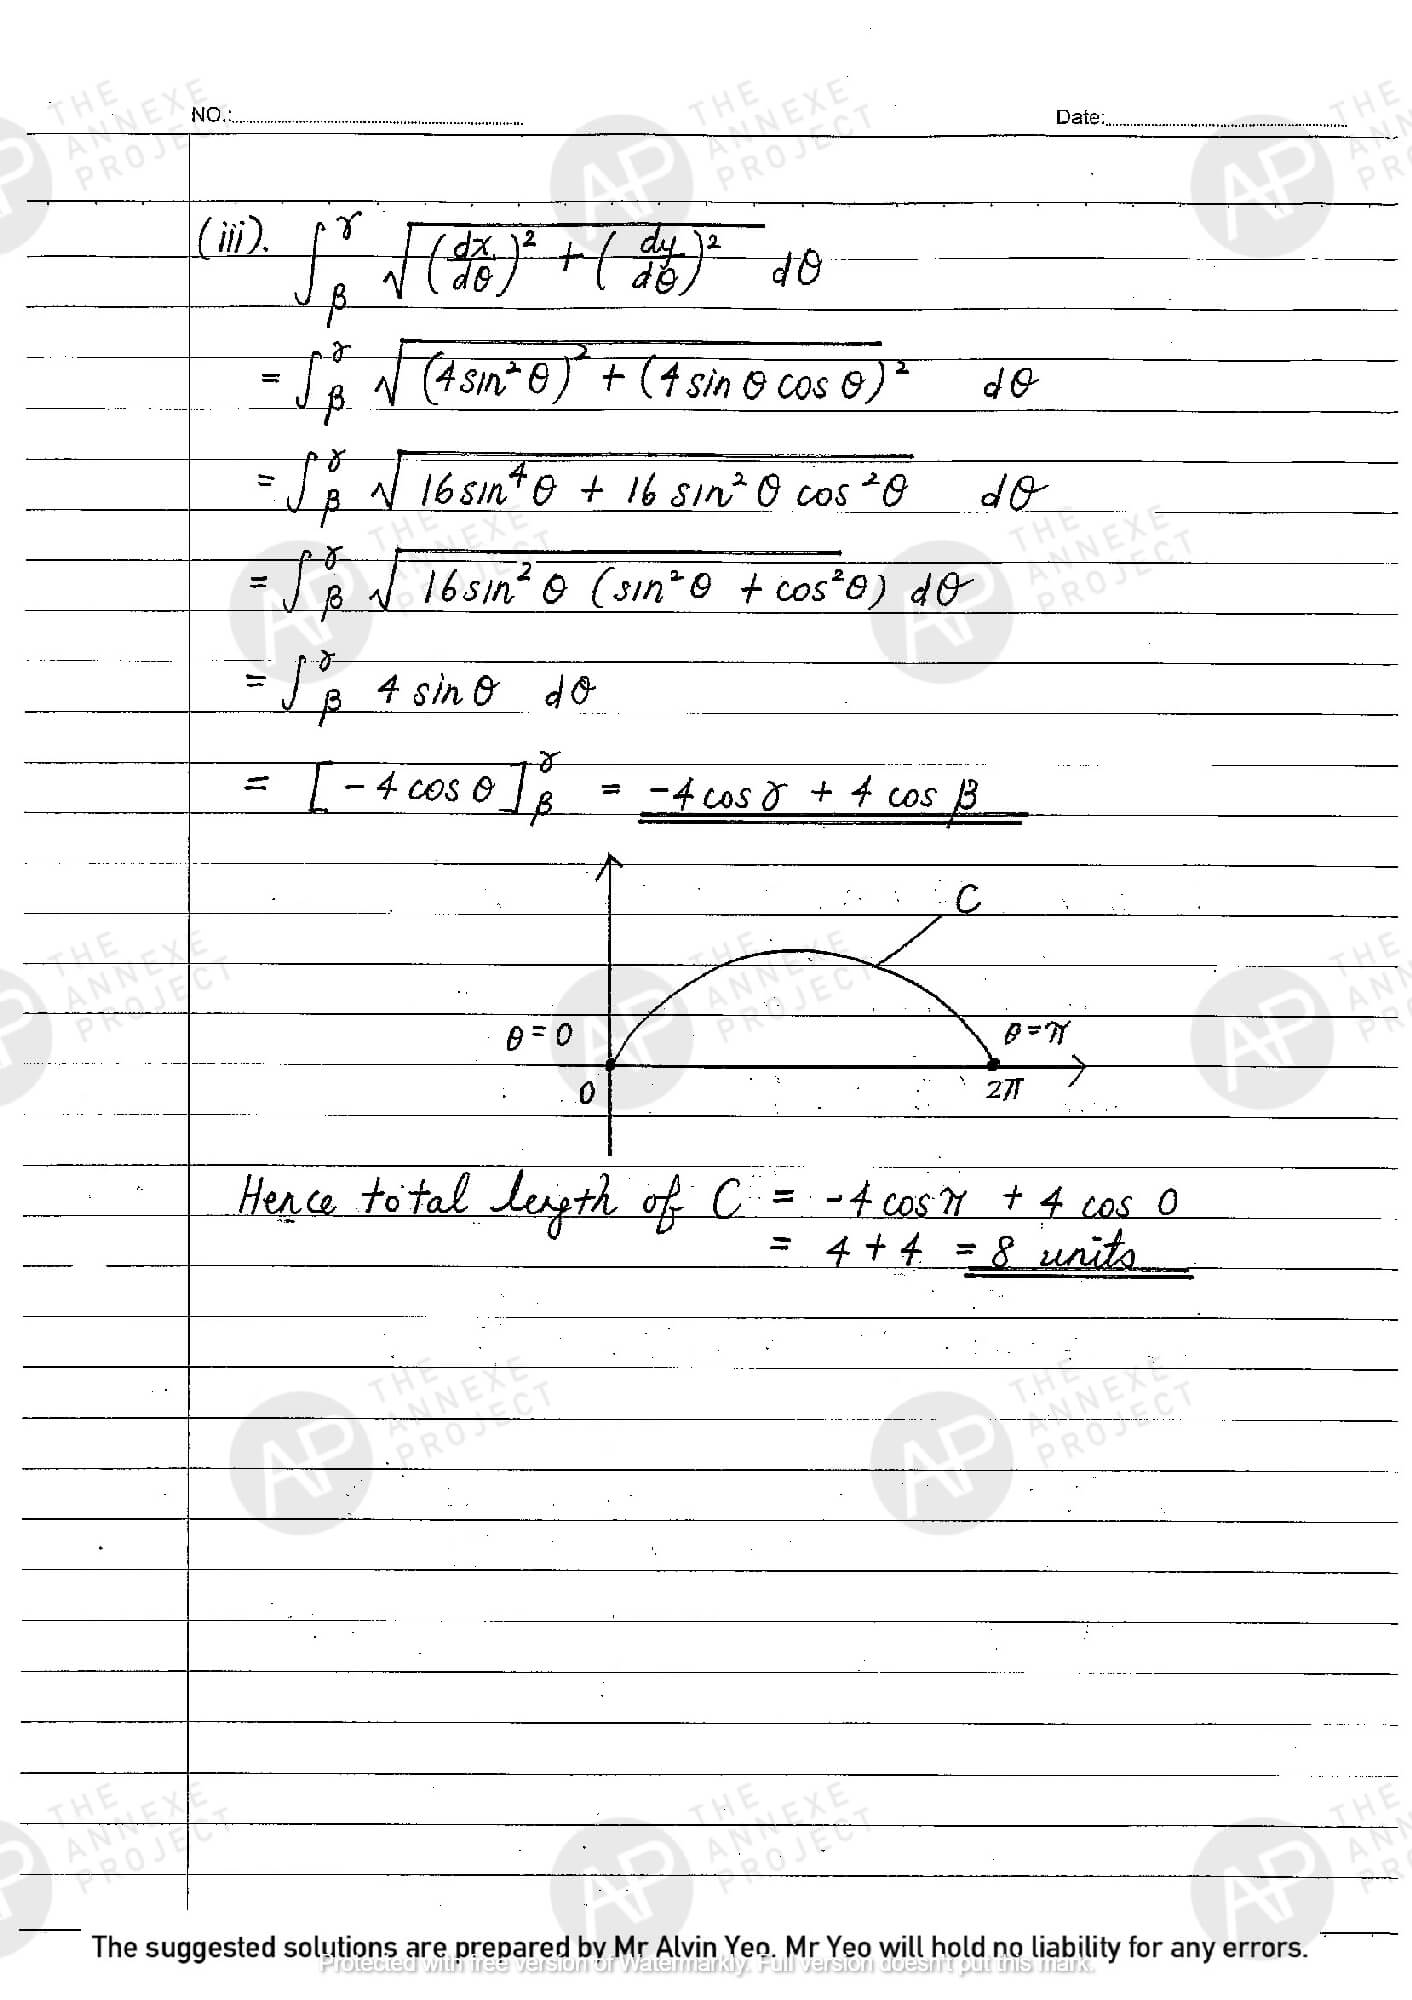 NO.: Date:
(iii). ∫_β^γ √((dx/dθ)² + (dy/dθ)²) dθ
= ∫_β^γ √((4sin²θ)² + (4sinθ cosθ)²) dθ
= ∫_β^γ √(16sin⁴θ + 16sin²θ cos²θ) dθ
= ∫_β^γ √(16sin²θ (sin²θ + cos²θ)) dθ
= ∫_β^γ 4 sinθ dθ
= [-4cosθ]_β^γ = -4cosγ + 4cosβ
C
θ=0 θ=π
0 2π
Hence total length of C = -4cosπ + 4cos0
= 4+4 = 8 units
THE ANNEXE PROJECT
AP
The suggested solutions are prepared by Mr Alvin Yeo. Mr Yeo will hold no liability for any errors.
Protected with free version of Watermarkly. Full version doesn't put this mark.